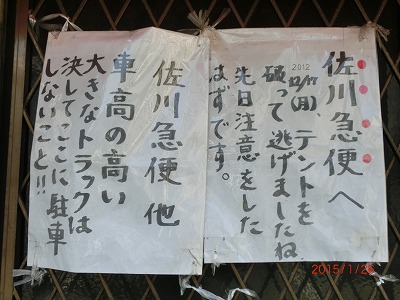 佐川急便へ
2012
12/17(月)、テントを
破って逃げましたね
先日注意をした
はずです。
佐川急便他
車高の高い
大きなトラックは
決してここに駐車
しないこと!!
2015/1/26